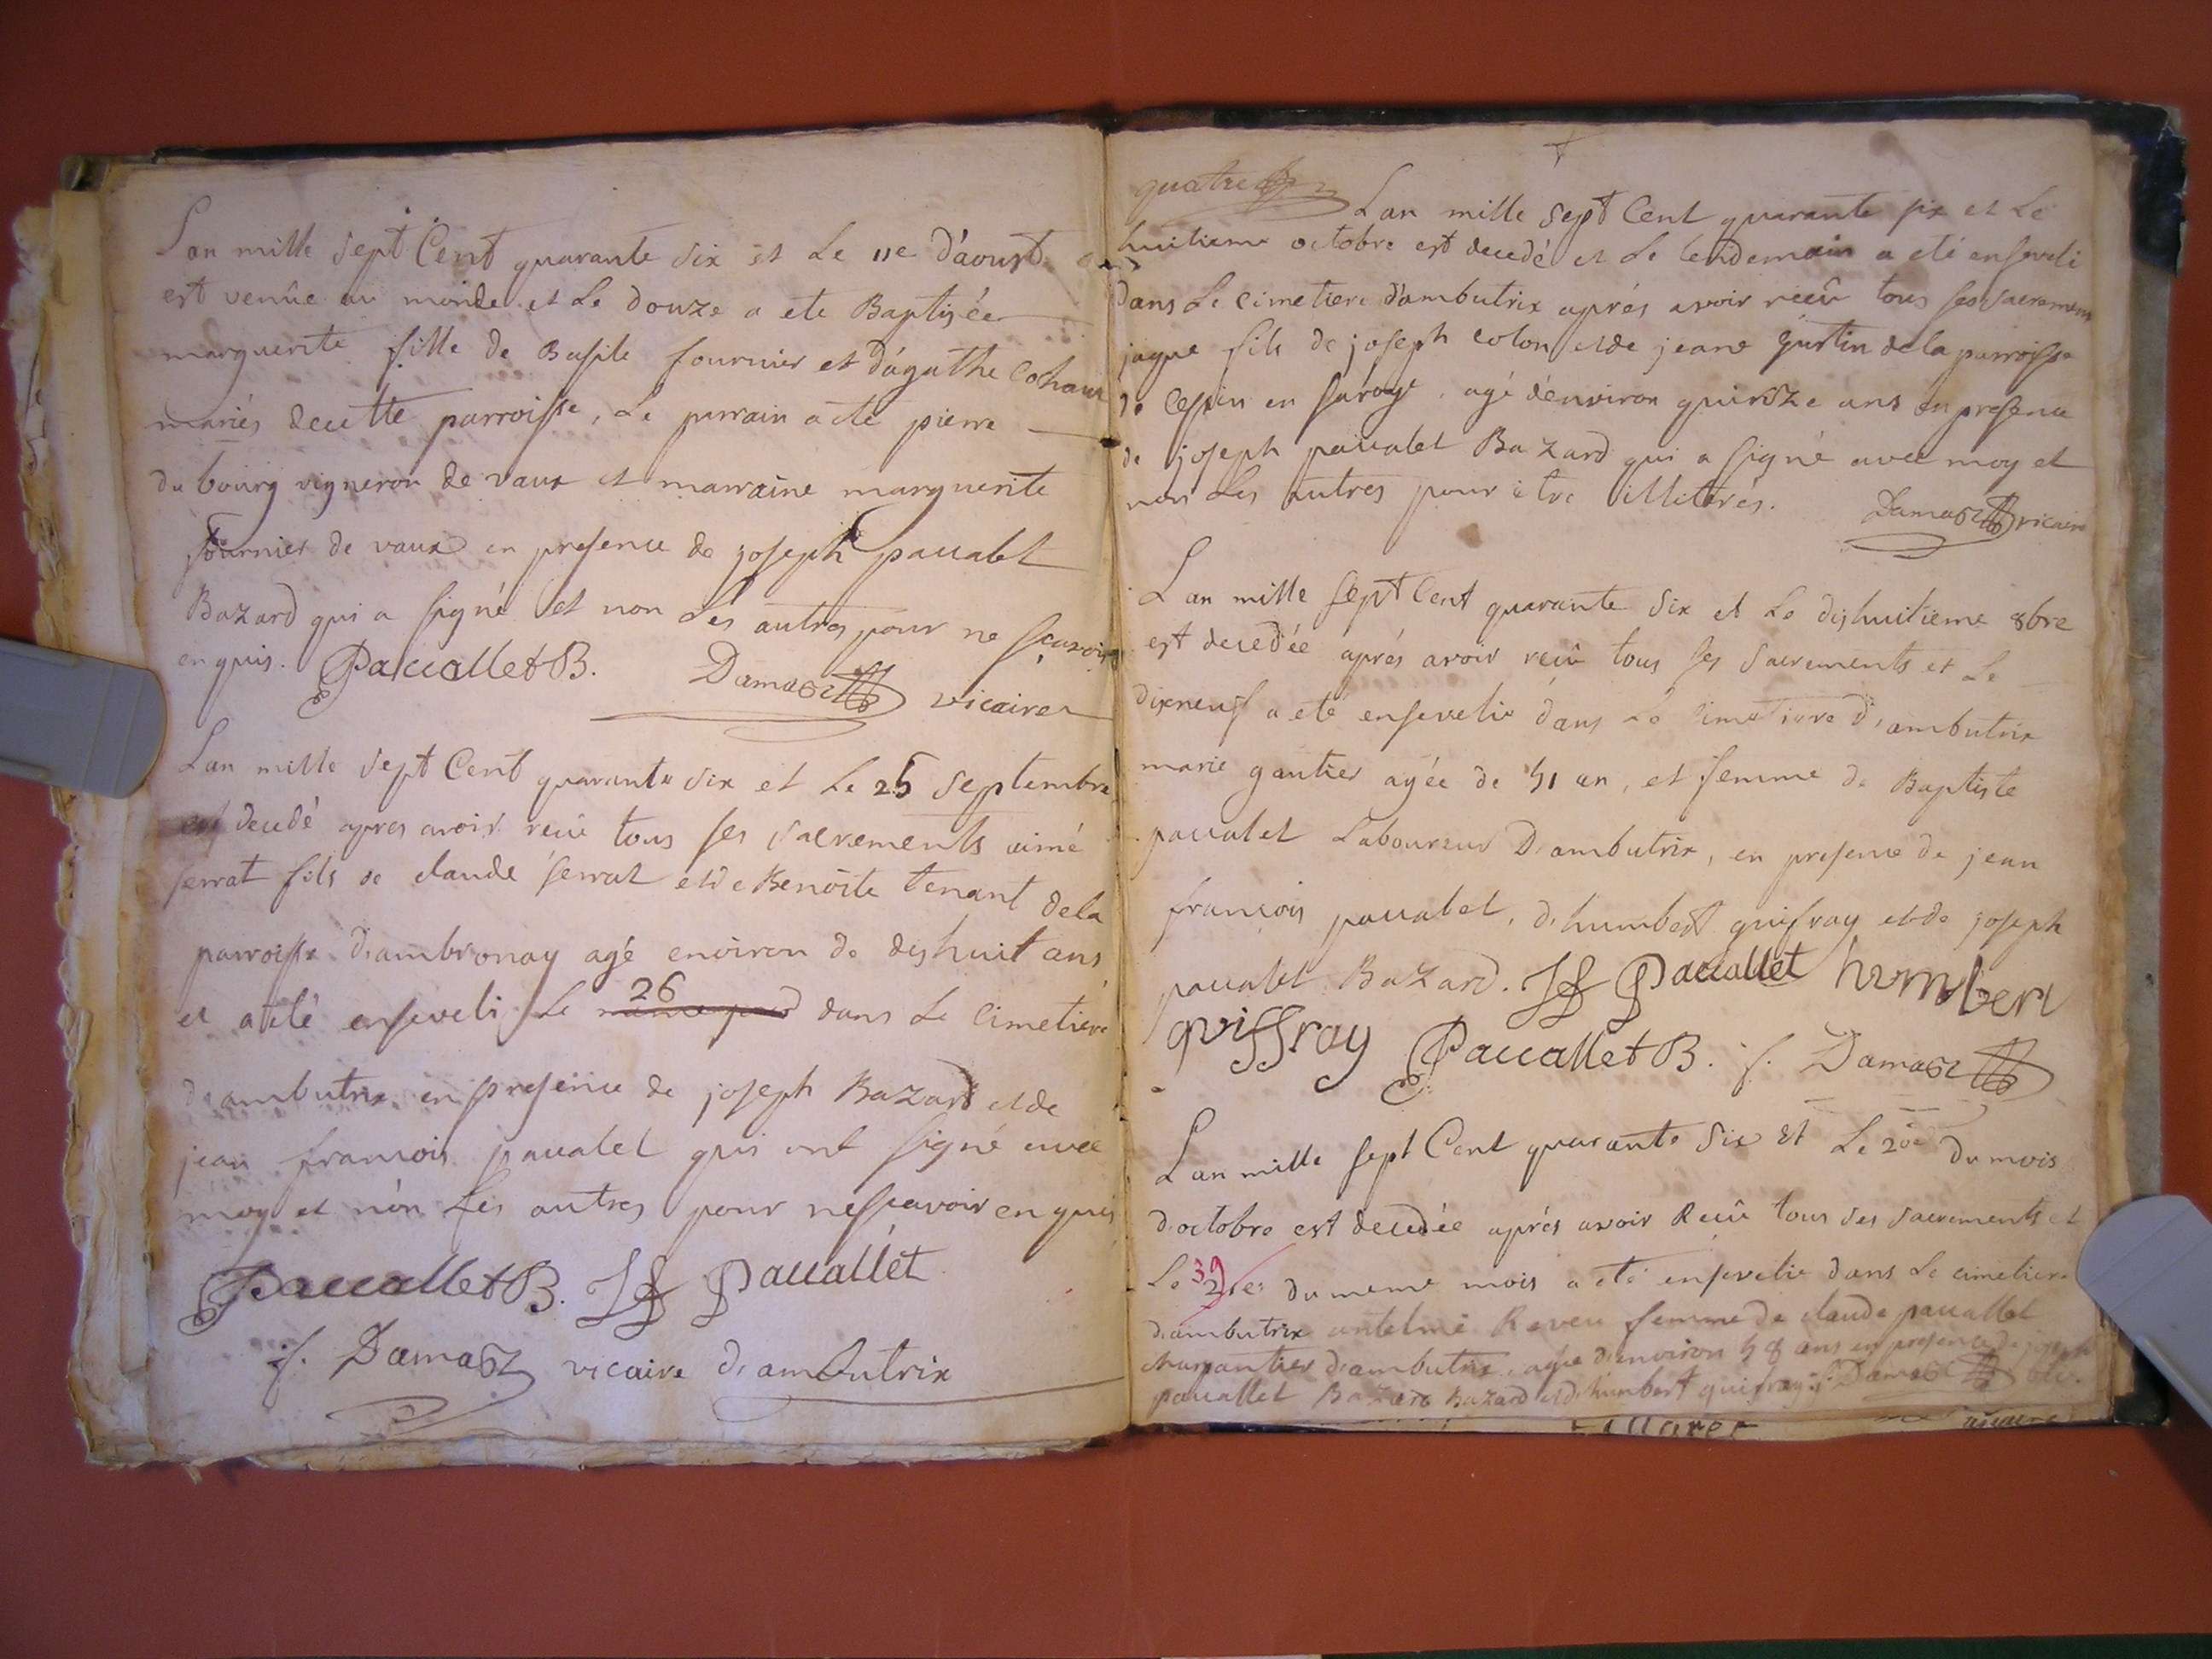 Lan mille sept Cent quarante six et Le 11e d'aoust
est venüe au monde et Le douze a ete Baptisée
marguerite fille de Basile fournier et d'agathe Cohaur
mariés decette parroisse, Le parrain a ete pierre
du bourg vigneron de vaux et marraine marguerite
fournier de vaux en presence de joseph pauabet
Bazard qui a signé et non Les autres pour ne sçavoir
enquis. PacuolletB. Damas vicaire
Lan mille sept Cent quarante six et Le 25 septembre
est decedé apres avoir reçu tous ses sacrements aimé
serrat fils de claude serrat et de Benoite tenant dela
parroisse d'ambronay agé environ de dishuit ans
et a eté enseveli Le 26 dans Le Cimetiere
d'ambutrix en presence de joseph Bazard et de
jean francois pauatet qui ont signé avec
moy et non Les autres pour nescavoir enquis
PacuolletB. Jf Pauallet
f. Damas vicaire d'ambutrix
quatre
Lan mille sept Cent quarante six et Le
huitieme octobre est decedé et Le lendemain a eté enseveli
dans Le Cimetiere d'ambutrix aprés avoir reçu tous ses sacremens
jaque fils de joseph colon et de jeane gustin dela parroisse
de Cessin en savoye, agé d'environ quinze ans en presence
de joseph pauabet Bazard qui a signé avec moy et
non Les autres pour etre illiterés. Damas vicaire
Lan mille sept Cent quarante six et Le dishuitieme 8bre
est decedée aprés avoir reçu tous ses sacrements et Le
dixneuf a eté ensevelie dans Le Cimetiere d'ambutrix
marie gautier agée de 41 an, et femme de Baptiste
pauatet Laboureur D'ambutrix, en presence de jean
francois pauatet, d'humbert guifray et de joseph
pauatet Bazard. Jf Pauallet humbert
guiffray PacuolletB. f. Damas
Lan mille sept Cent quarante Six Et Le 20e du mois
d'octobre est decedée aprés avoir Reçu tous ses sacrements et
Le 21e du meme mois a eté ensevelie dans Le cimetiere
39
d'ambutrix antelme Reveu femme de claude pauallet
charpantier d'ambutrix, agée d'environ 48 ans en presence de joseph
pauallet Bazard Bazard et d'humbert guifray. f. Damas